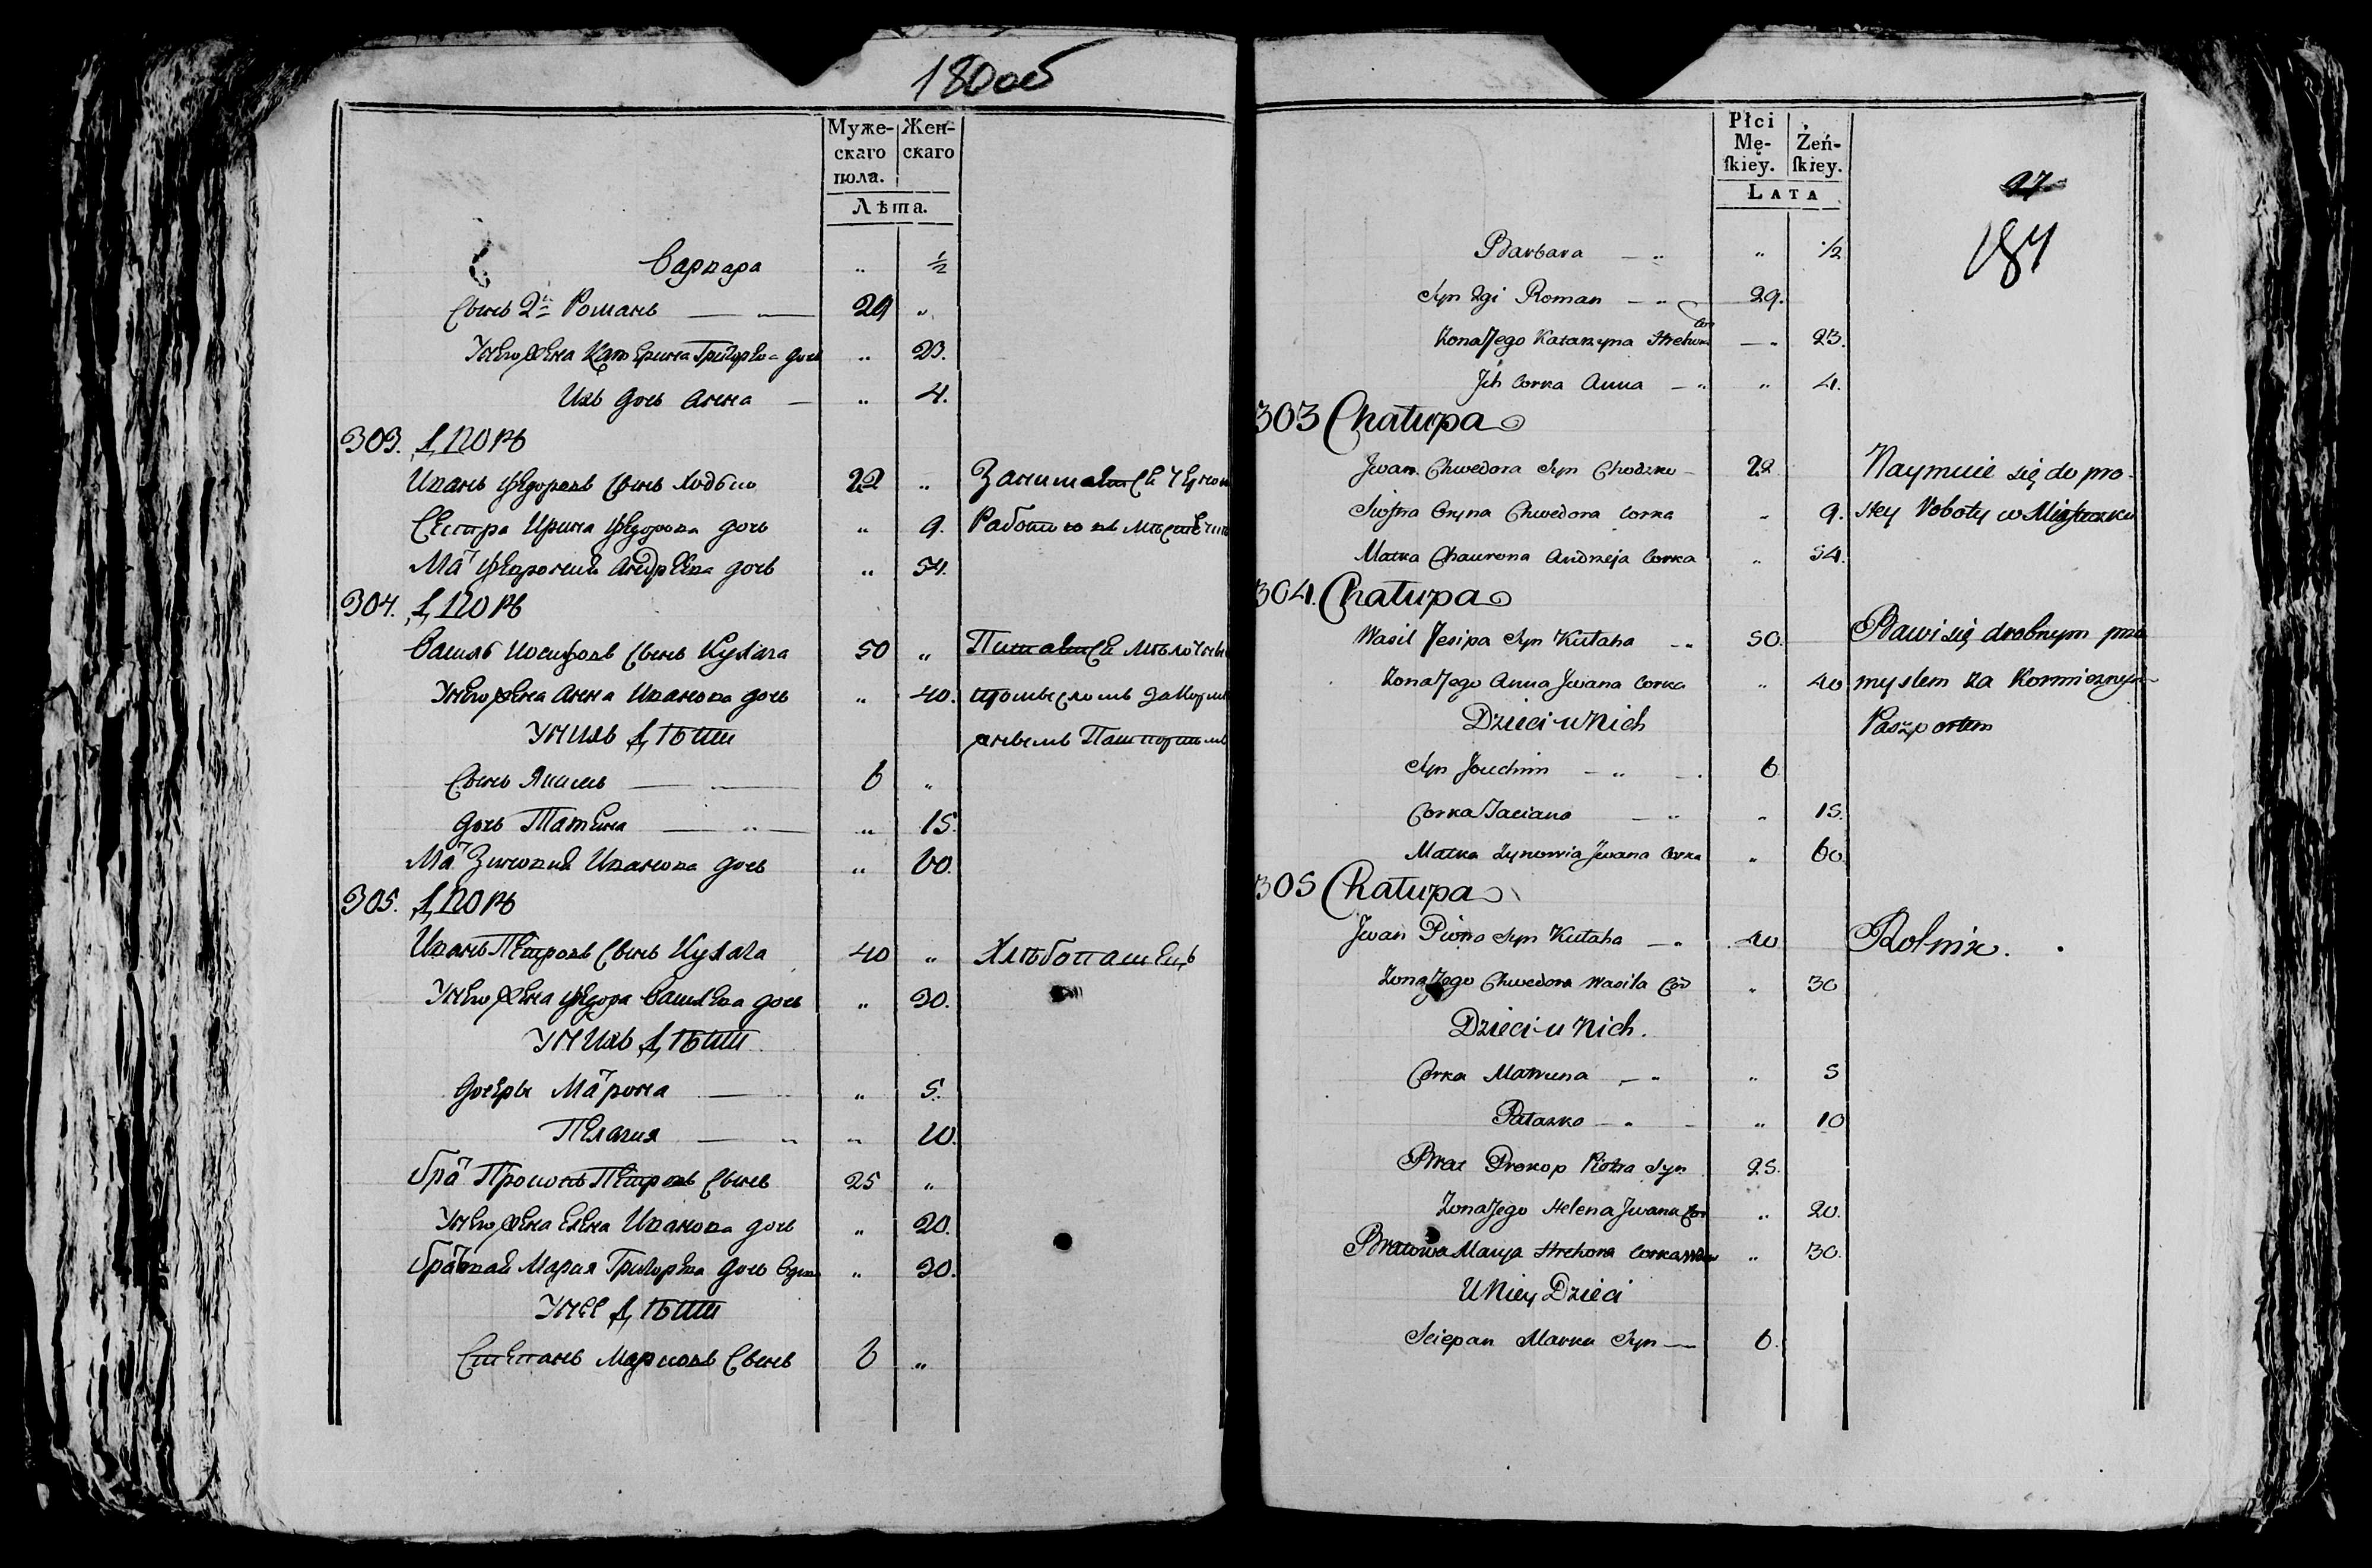 180об
Муже-
скаго
пола.
Жен-
скаго
Лѣта.
Варвара „ ½
Сынъ 2й Романъ 29 „
У него жена Катерина Григорьева дочь „ 23.
Ихъ дочь Анна „ 4.
303. Дворъ
Иванъ Федоровъ Сынъ Ходько 22 „ Занимается черною
Сестра Ирина Федорова дочь „ 9. Работою въ
Мать Февронія Андреева дочь „ 54.
304. Дворъ
Василь Иосифовъ Сынъ Кулага 50 „ Питается мѣлочнымъ
У него жена Анна Иванова дочь „ 40. промысломъ
У нихъ Дѣти Пашпортомъ
Сынъ Якимъ 6 „
дочь Татьяна „ 15.
Мать Зиновия Иванова дочь „ 60.
305. Дворъ
Иванъ Петровъ Сынъ Кулага 40 „ Хлѣбопашецъ
У него жена Федора Васильева дочь „ 30.
У нихъ Дѣти
дочери Матрона „ 5.
Пелагия „ 10.
братъ Прокопъ Петровъ Сынъ 25 „
У него жена Елена Иванова дочь „ 20.
Мария Григорьева дочь „ 30.
У нее Дѣти
Степанъ Марковъ Сынъ 6 „
Płci
Mę-
ſkiey.
Żeń-
ſkiey.
LATA
27
181
Barbara „ ½
Syn 2gi Roman 29.
Żona Jego Katarzyna Hrehora Cor „ 23.
Jch Corka Anna „ 4.
303 Chałupa
Jwan Chwedora Syn Chodzko 22 Naymuie się do pro-
Siostra Oryna Chwedora Corka „ 9. stey Roboty w Miasteczku
Matka Chaurona Andrzeja Corka „ 54.
304. Chałupa
Wasil Jesipa Syn Kułaha 50. Bawi się drobnym prze
Żona Jego Anna Jwana Corka „ 40 mysłem za
Dzieci u Nich Paszportem
Syn Jouchim 6
Corka Taciana „ 15.
Matka Zynowia Jwana Corka „ 60.
305 Chałupa
Jwan Piotra Syn Kułaha 40 Rolnik.
Żona Jego Chwedora Wasila Cor „ 30
Dzieci u Nich.
Corka Matruna „ 5
Pałazka „ 10
Brat Prokop Piotra Syn 25.
Żona Jego Helena Jwana Cor „ 20.
Bratowa Marya Hrehora Corka „ 30.
U Niey Dzieci
Sciepan Marka Syn 6.